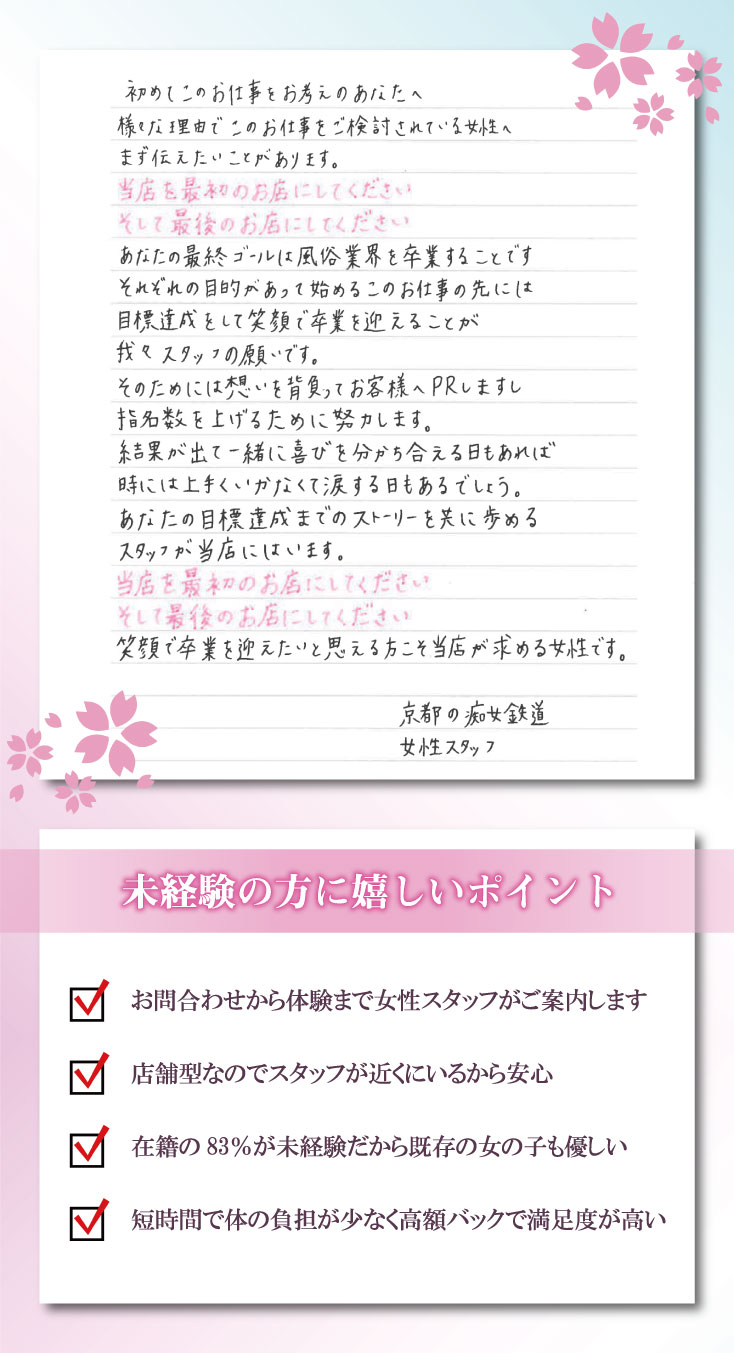 初めてこのお仕事をお考えのあなたへ
様々な理由でこのお仕事をご検討されている女性へ
まず伝えたいことがあります。
当店を最初のお店にしてください
そして最後のお店にしてください
あなたの最終ゴールは風俗業界を卒業することです
それぞれの目的があって始めるこのお仕事の先には
目標達成をして笑顔で卒業を迎えることが
我々スタッフの願いです。
そのためには想いを背負ってお客様へPRしますし
指名数を上げるために努力します。
結果が出て一緒に喜びを分かち合える日もあれば
時には上手くいかなくて涙する日もあるでしょう。
あなたの目標達成までのストーリーを共に歩める
スタッフが当店にはいます。
当店を最初のお店にしてください
そして最後のお店にしてください
笑顔で卒業を迎えたいと思える方こそ当店が求める女性です。
京都の痴女鉄道
女性スタッフ
未経験の方に嬉しいポイント
お問合わせから体験まで女性スタッフがご案内します
店舗型なのでスタッフが近くにいるから安心
在籍の83%が未経験だから既存の女の子も優しい
短時間で体の負担が少なく高額バックで満足度が高い